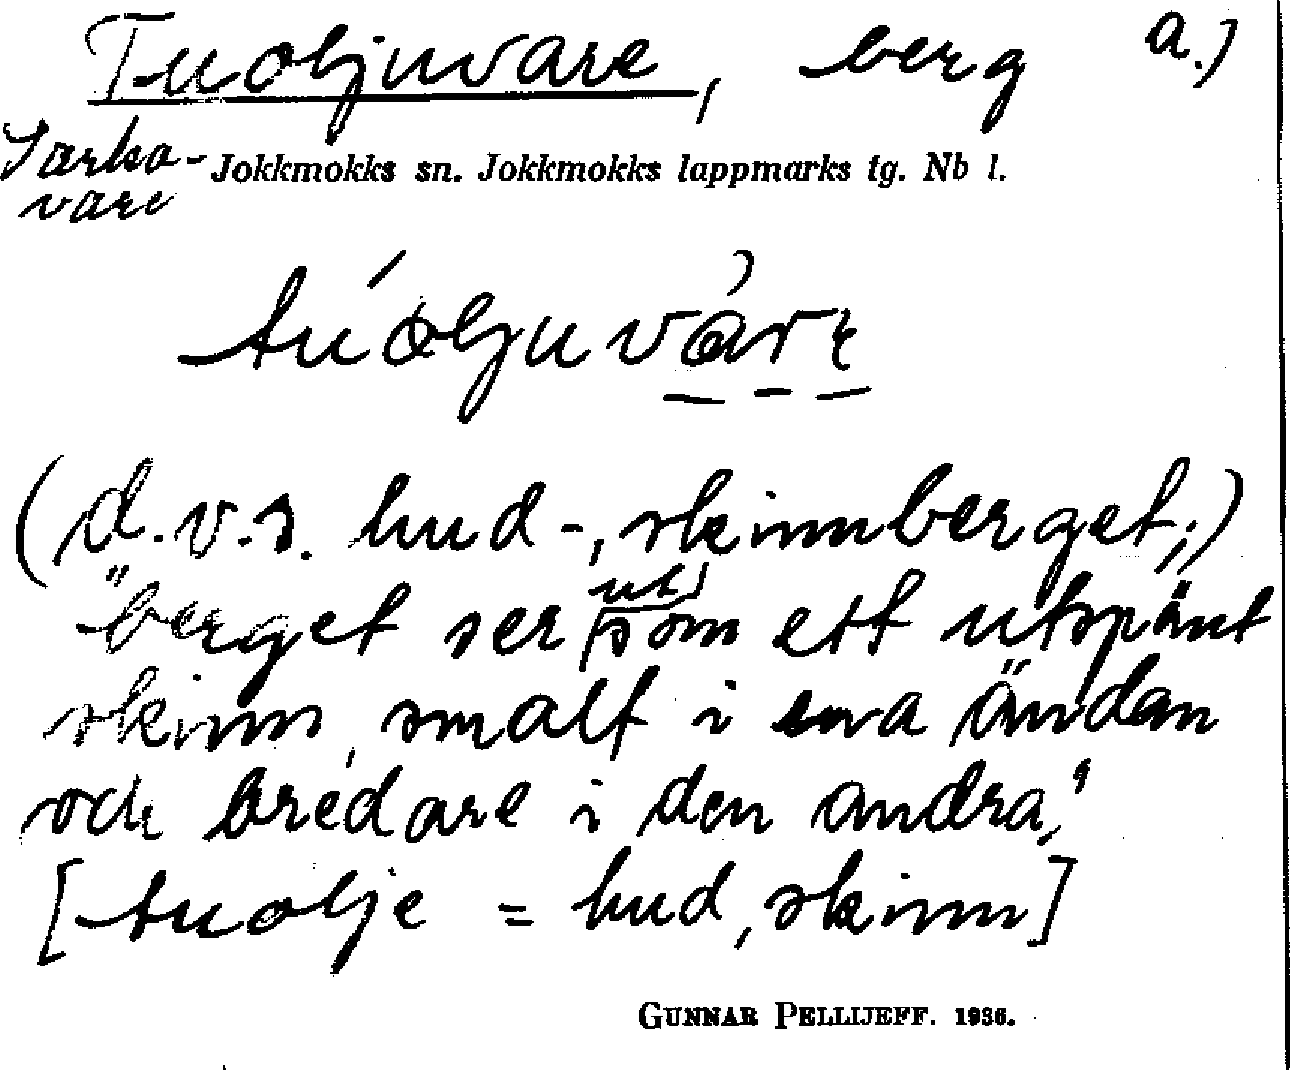 Tuoljuvare, berg a.)
Jarka-
vare
Jokkmokks sn. Jokkmokks lappmarks tg. Nb l.
(d.v.s. hud-, skinnberget;)
"berget ser ut som ett utspänt
skinn, smalt i ena ändan
och bredare i den andra."
[tuolje = hud, skinn]
GUNNAR PELLIJEFF. 1936.